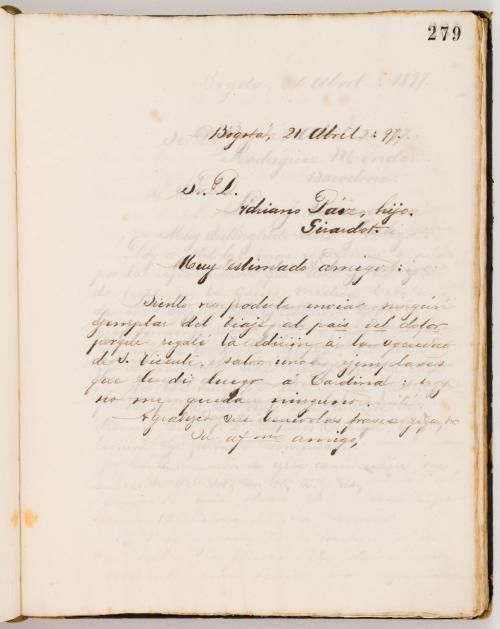 279
Bogotá, 21 Abril : 97.
Sr. D.
Adriano Páez, hijo.
Girardot.
Muy estimado amigo :
Siento no poderle enviar ningún
ejemplar del Viaje al país del dolor
porque regalé la edición á la Sociedad
de S. Vicente, salvo unos ejemplares
que le di luego á Cardina : hoy
no me queda ninguno.
Agradezco sus benévolas frases y quedo
Su afmo amigo,